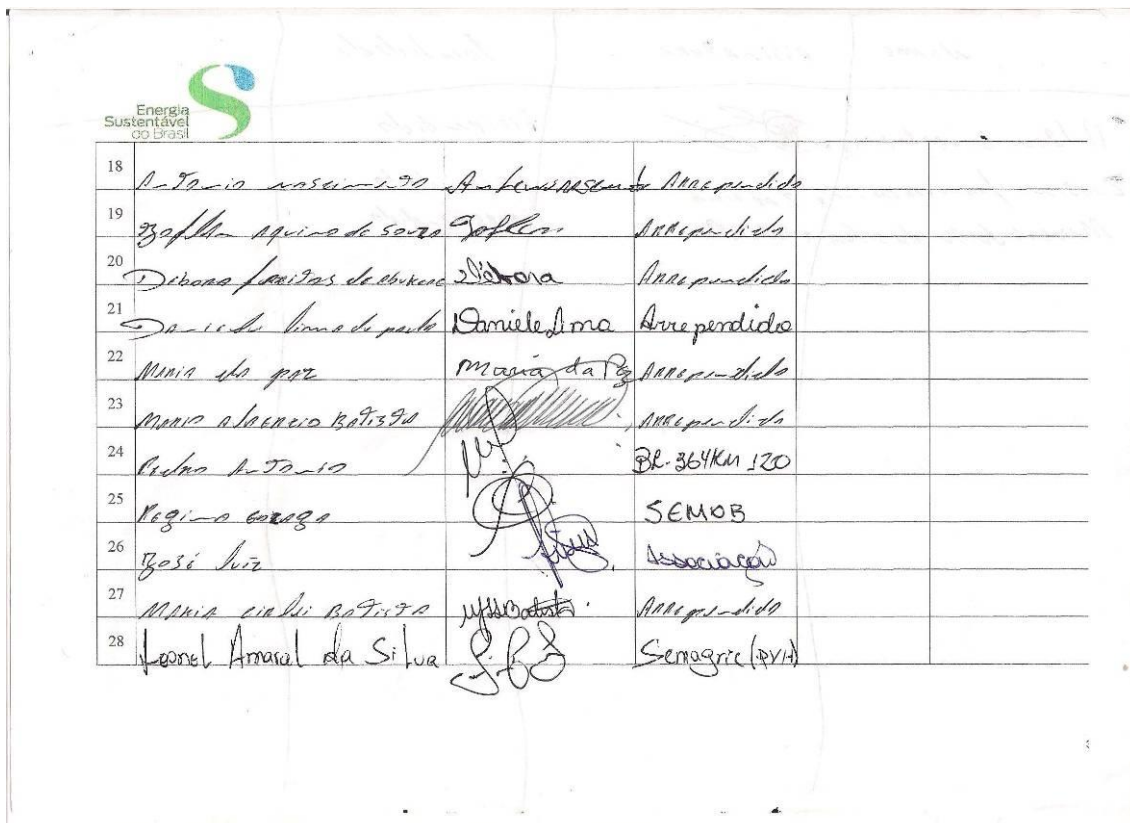 Energia
Sustentável
do Brasil
18 Antonio nascimento Arrependido
19 Aquino de Souza Arrependido
20 Debora freitas de Débora Arrependido
21 Daniele lima de paula Daniele Lima Arrependido
22 Maria da paz Maria da Paz Arrependido
23 Batista Arrependido
24 Pedro Antonio BR-364 KM 120
25 Regina SEMOB
26 José Luiz Associação
27 Maria Batista Arrependido
28 Leonel Amaral da Silva Semagric (PVH)